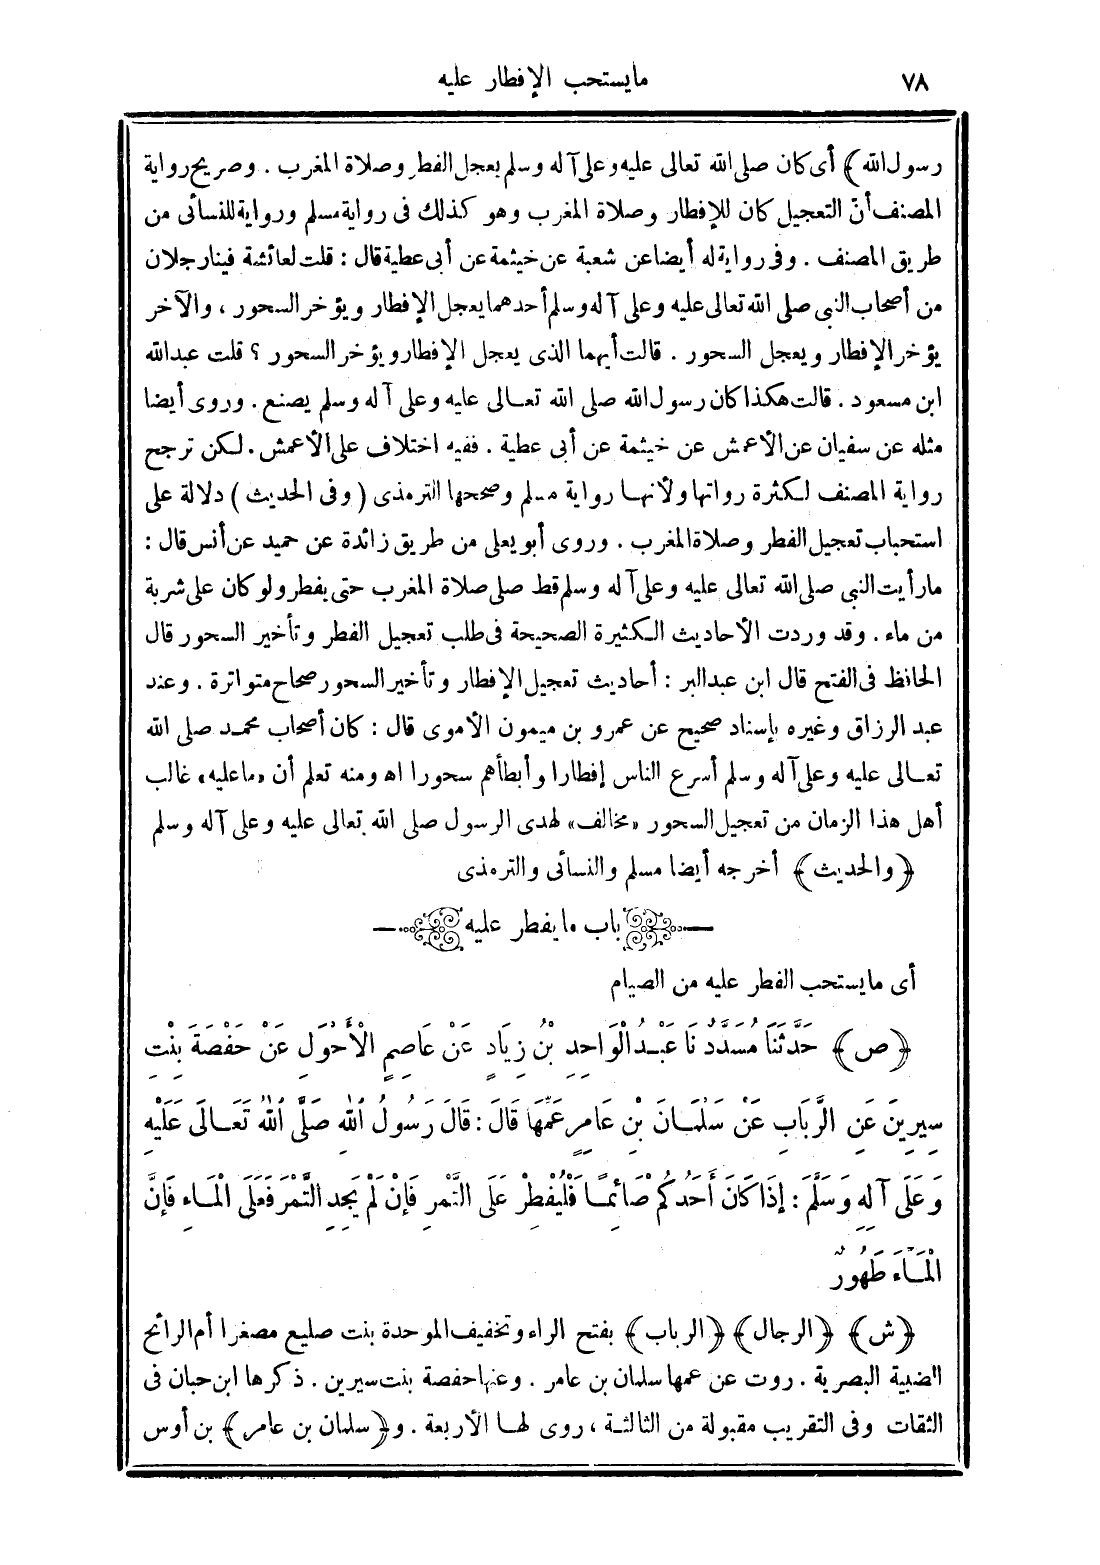 ٧٨
مايستحب الإفطار عليه
رسول الله﴾ أى كان صلى الله تعالى عليه وعلى آله وسلم يعجل الفطر وصلاة المغرب . وصريح رواية
المصنف أنّ التعجيل كان للإفطار وصلاة المغرب وهو كذلك فى رواية مسلم ورواية للنسائى من
طريق المصنف . وفى رواية له أيضا عن شعبة عن خيثمة عن أبى عطية قال : قلت لعائشة فينا رجلان
من أصحاب النبى صلى الله تعالى عليه وعلى آله وسلم أحدهما يعجل الإفطار ويؤخر السحور ، والآخر
يؤخر الإفطار ويعجل السحور . قالت أيهما الذى يعجل الإفطار ويؤخر السحور ؟ قلت عبدالله
ابن مسعود . قالت هكذا كان رسول الله صلى الله تعالى عليه وعلى آله وسلم يصنع . وروى أيضا
مثله عن سفيان عن الأعمش عن خيثمة عن أبى عطية . ففيه اختلاف على الأعمش . لكن ترجح
رواية المصنف لكثرة رواتها ولأنها رواية مسلم وصححها الترمذى (وفى الحديث) دلالة على
استحباب تعجيل الفطر وصلاة المغرب . وروى أبو يعلى من طريق زائدة عن حميد عن أنس قال :
ما رأيت النبى صلى الله تعالى عليه وعلى آله وسلم قط صلى صلاة المغرب حتى يفطر ولو كان على شربة
من ماء . وقد وردت الأحاديث الكثيرة الصحيحة فى طلب تعجيل الفطر وتأخير السحور قال
الحافظ فى الفتح قال ابن عبدالبر : أحاديث تعجيل الإفطار وتأخير السحور صحاح متواترة . وعند
عبد الرزاق وغيره بإسناد صحيح عن عمرو بن ميمون الأموى قال : كان أصحاب محمد صلى الله
تعالى عليه وعلى آله وسلم أسرع الناس إفطارا وأبطأهم سحورا اه ومنه تعلم أن «ماعليه» غالب
أهل هذا الزمان من تعجيل السحور «مخالف» لهدى الرسول صلى الله تعالى عليه وعلى آله وسلم
﴿والحديث﴾ أخرجه أيضا مسلم والنسائى والترمذى
باب ما يفطر عليه
أى ما يستحب الفطر عليه من الصيام
﴿ص﴾ حَدَّثَنَا مُسَدَّدٌ نَا عَبْدُ الْوَاحِدِ بْنُ زِيَادٍ عَنْ عَاصِمٍ الْأَحْوَلِ عَنْ حَفْصَةَ بِنْتِ
سِيرِينَ عَنِ الرَّبَابِ عَنْ سَلْمَانَ بْنِ عَامِرٍ عَمِّهَا قَالَ : قَالَ رَسُولُ اللهِ صَلَّى اللهُ تَعَالَى عَلَيْهِ
وَعَلَى آلِهِ وَسَلَّمَ : إِذَا كَانَ أَحَدُكُمْ صَائِمًا فَلْيُفْطِرْ عَلَى التَّمْرِ فَإِنْ لَمْ يَجِدِ التَّمْرَ فَعَلَى الْمَاءِ فَإِنَّ
الْمَاءَ طَهُورٌ
﴿ش﴾ ﴿الرجال﴾ ﴿الرباب﴾ بفتح الراء وتخفيف الموحدة بنت صليع مصغرا أم الرائح
الضبية البصرية . روت عن عمها سلمان بن عامر . وعنها حفصة بنت سيرين . ذكرها ابن حبان فى
الثقات وفى التقريب مقبولة من الثالثة ، روى لها الأربعة . و﴿سلمان بن عامر﴾ بن أوس